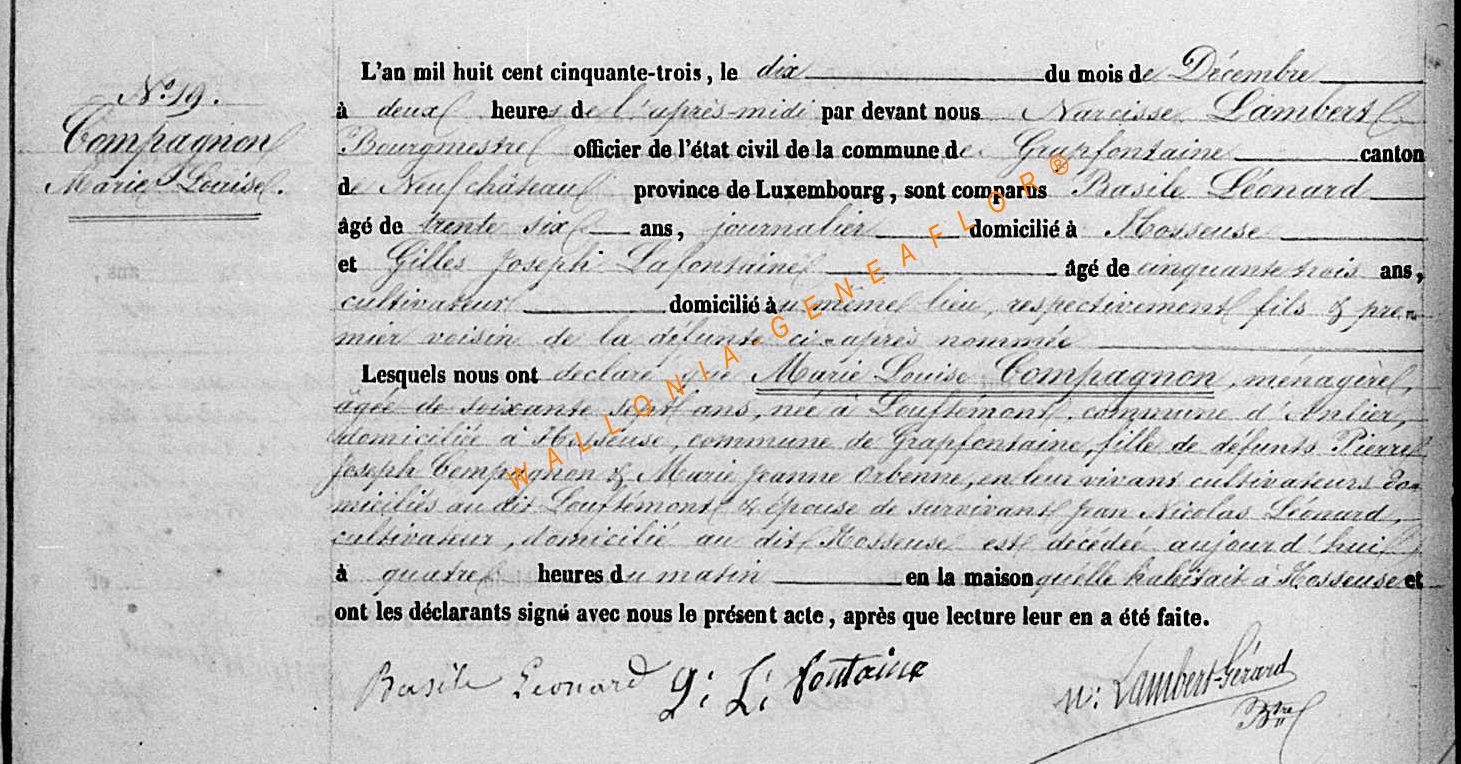 No. 19.
Compagnon
Marie Louise.
L'an mil huit cent cinquante-trois, le dix du mois de Décembre
à deux heures de l'après-midi par devant nous Narcisse Lambert
Bourgmestre officier de l'état civil de la commune de Grapfontaine canton
de Neufchâteau province de Luxembourg, sont comparus Basile Léonard
âgé de trente six ans, journalier domicilié à Hosseuse
et Gilles Joseph Lafontaine âgé de cinquante trois ans,
cultivateur domicilié au même lieu, respectivement fils & pre-
mier voisin de la défunte ci-après nommée
Lesquels nous ont déclaré que Marie Louise Compagnon, ménagère,
âgée de soixante sept ans, née à Louftémont, commune d'Anlier,
domiciliée à Hosseuse, commune de Grapfontaine, fille de défunts Pierre
Joseph Compagnon & Marie Jeanne Orbenne, en leur vivant cultivateurs do-
miciliés au dit Louftémont & épouse de survivant Jean Nicolas Léonard,
cultivateur, domicilié au dit Hosseuse est décédée aujourd'hui
à quatre heures du matin en la maison qu'elle habitait à Hosseuse et
ont les déclarants signé avec nous le présent acte, après que lecture leur en a été faite.
Basile Leonard G: L: fontaine N: Lambert-Gérard
Btre
WALLONIA-GENEAFLOR®